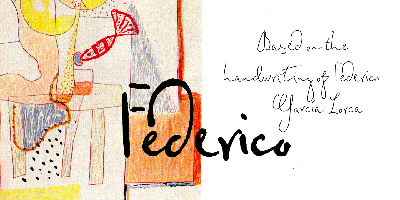 Federico
Based on the
handwriting of Federico
Garcia Lorca